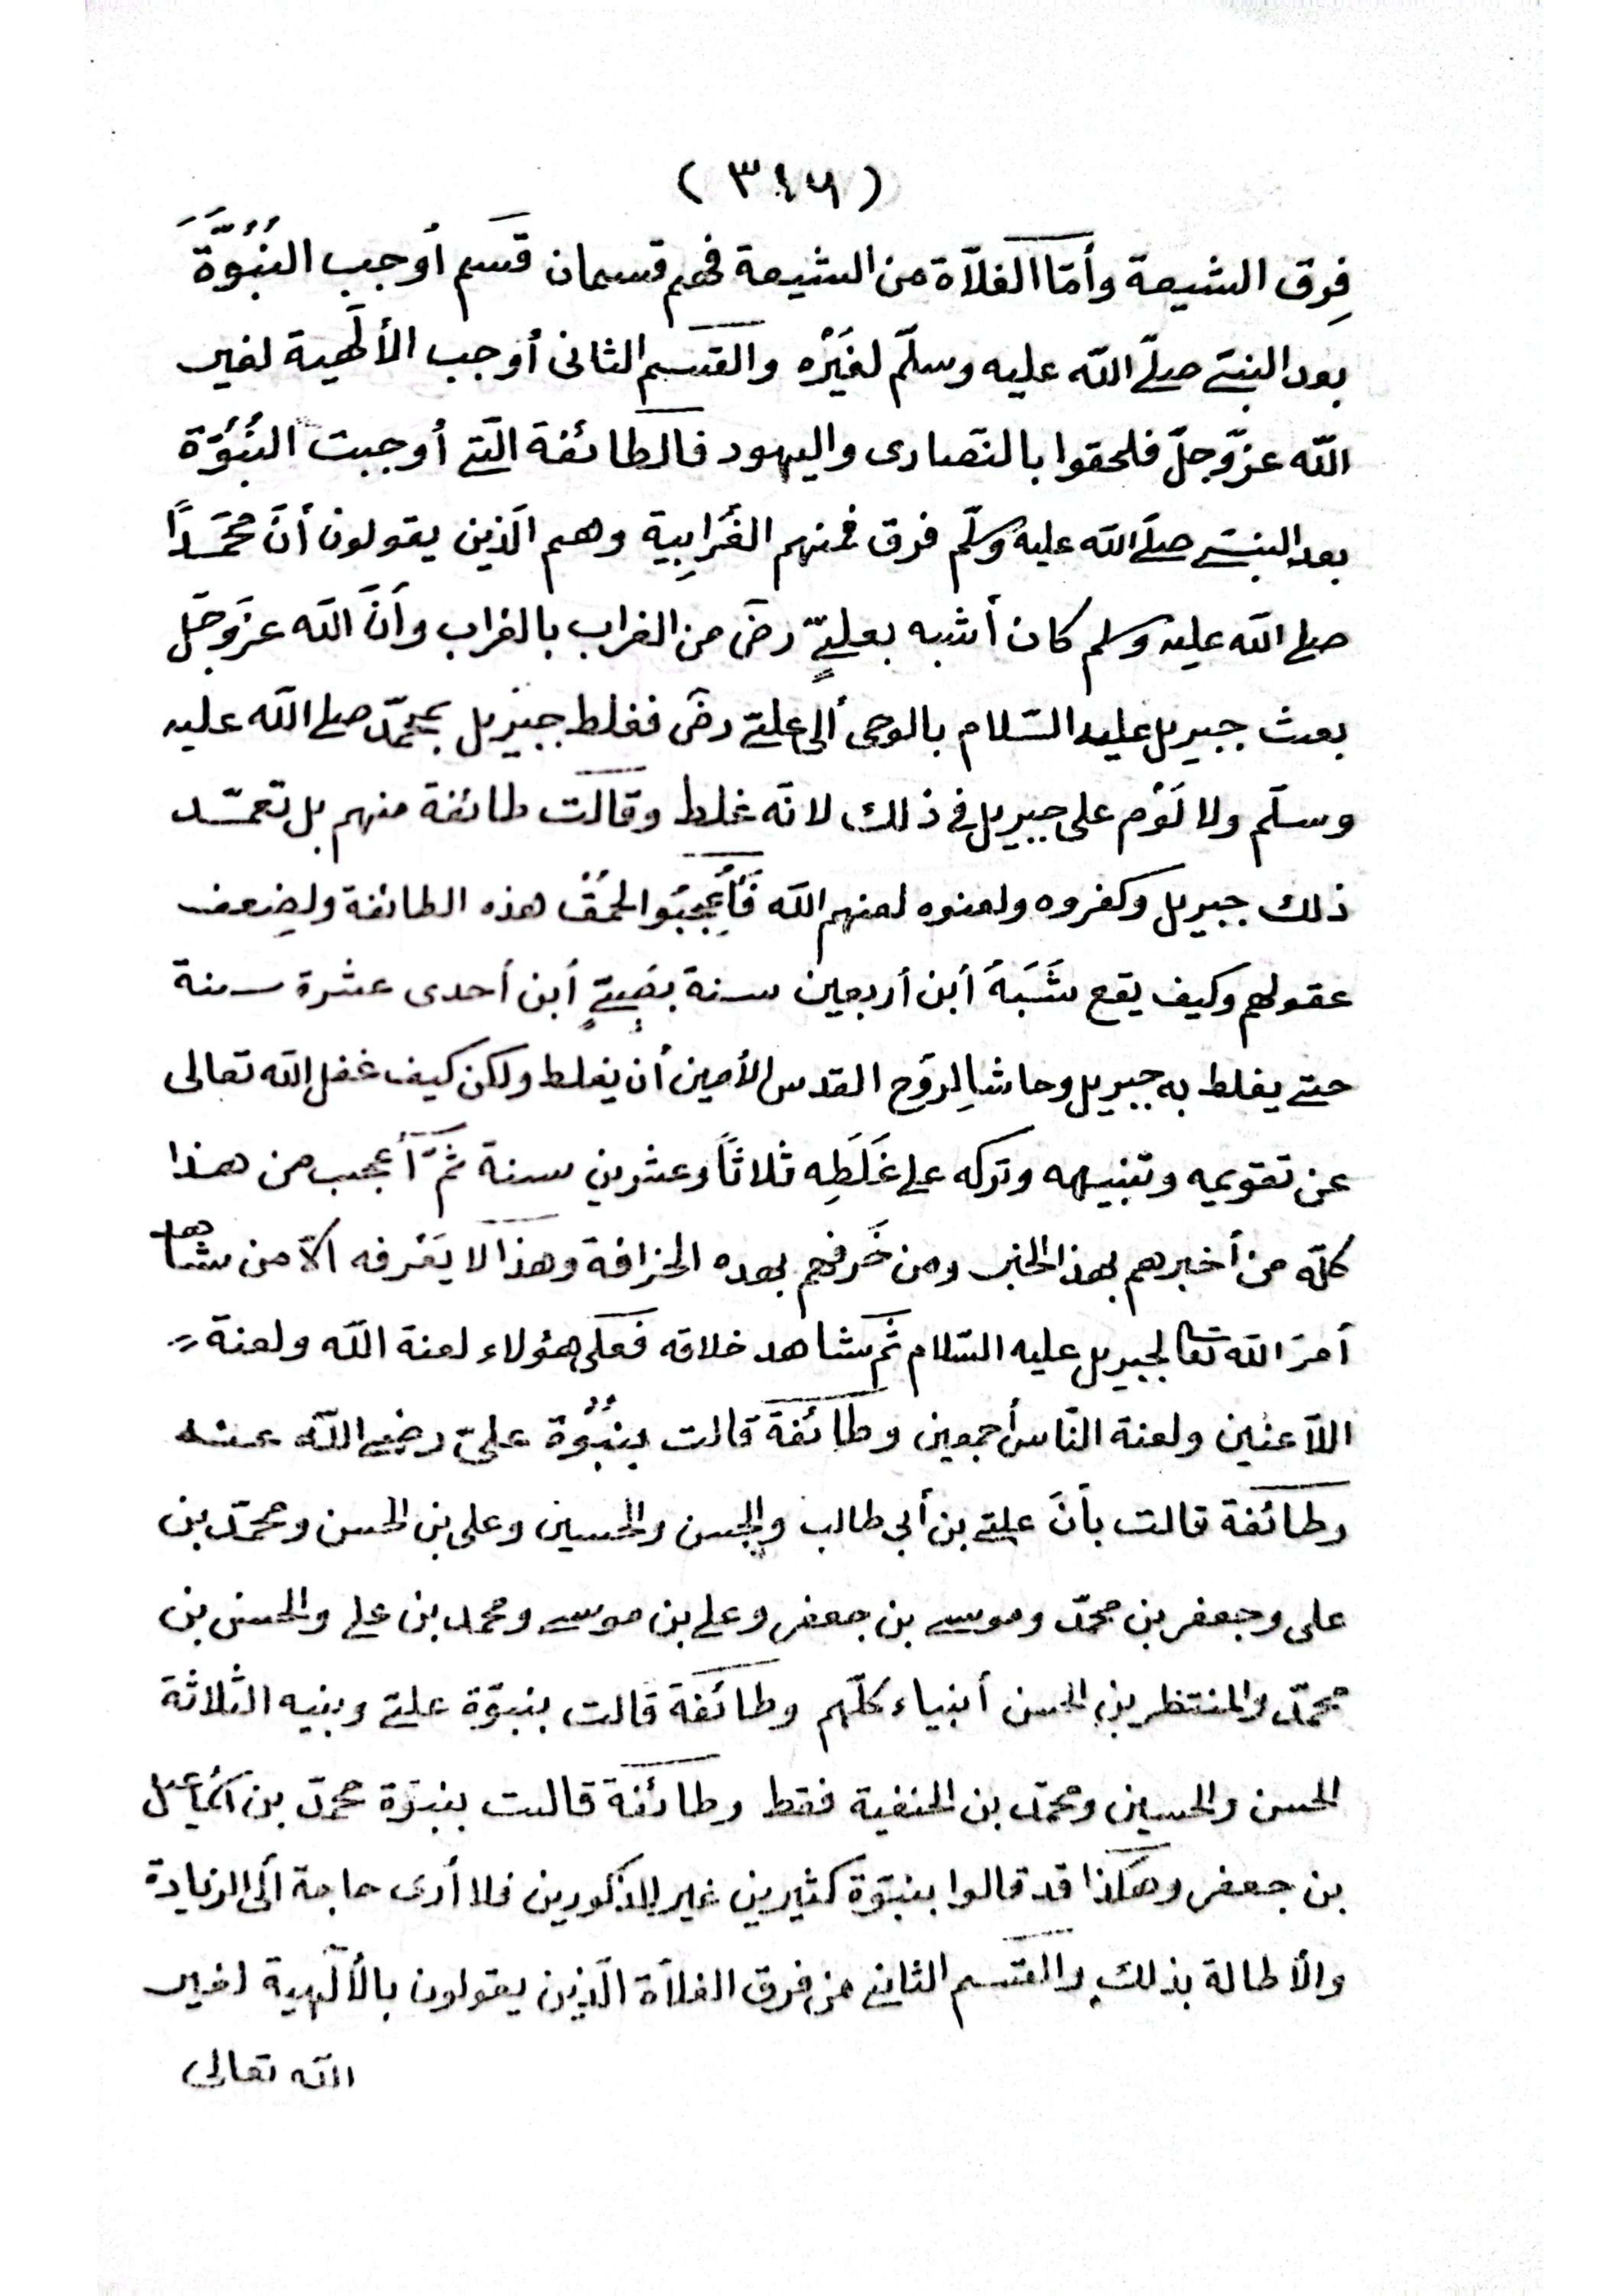 ( ٣٤٦ )
فِرق الشيعة وأمّا الغلاّة من الشيعة فهم قسمان قسم أوجب النُبُوَّةَ
بعد النبيّ صلّى اللّه عليه وسلّم لغَيْرْه والقسم الثانى أوجب الألٓهية لغير
اللّه عزّوجلّ فلحقوا بالنّصارى واليهود فالطائفة الّتى أوجبت النُبُوّة
بعد النبىّ صلّى اللّه عليه وسلّم فرق فمنهم الغُرَابِية وهم الّذين يقولون أنَّ محمّداً
صلى اللّه عليه وسلم كان أشبه بعلىٍّ رضَى من الغراب بالغراب وأنّ اللّه عزّوجَل
بعث جبريل عليه السّلام بالوحى ألى علىّ رضَى فغلط جبريل بمحمّد صلى اللّه عليه
وسلّم ولا لَوْم على جبريل فى ذلك لانّه غلط وقالت طائفة منهم بل تعمّد
ذلك جبريل وكفروه ولعنوه لعنهم اللّه فَأعْجبُوا لحُمْق هذه الطائفة ولضِعف
عقولهم وكيف يقع شَبَهُ أبن أربعين سنة بصَبىٍّ أبن أحدى عشرة سنة
حتى يغلط به جبريل وحاشا لِروُح القدس الأمين أن يغلط ولكن كيف غفل اللّه تعالى
عن تقويمه وتنبيهه وتركه على غَلَطِه ثلاثاً وعشرين سنة ثمّ أعجب من هذا
كلّه من أخبرهم بهذا الخبر ومن خَرفهم بهده الخرافة وهذا لا يَعْرفه الاّ من شاهد
أمرَ اللّه تعالى لجبريل عليه السّلام ثمّ شاهد خلافه فعلى هئولاء لعنة اللّه ولعنة
اللاّعنين ولعنة النّاس أجمعين وطائفة قالت بنبُوّة علىّ رضى اللّه عنه
وطائفة قالت بأنّ علىّ بن أبى طالب والحسن والحسين وعلى بن الحسن ومحمّد بن
على وجعفر بن محمّد وموسى بن جعفر وعلى بن موسى ومحمد بن على والحسن بن
محمّد والمنتظر بن الحسن أنبياء كلّهم وطائفة قالت بنبوّة علىّ وبنيه الثلاثة
الحسن والحسين ومحمّد بن الحنفية فقط وطائفة قالت بنبوّة محمّد بن اسماعيل
بن جعفر وهكذا قد قالوا بنبوّة كثيرين غير المذكورين فلا أرى حاجة ألى الزيادة
والأطالة بذلك والقسم الثانى من فرق الغلاّة الّذين يقولون بالألٓهية لغير
اللّه تعالى